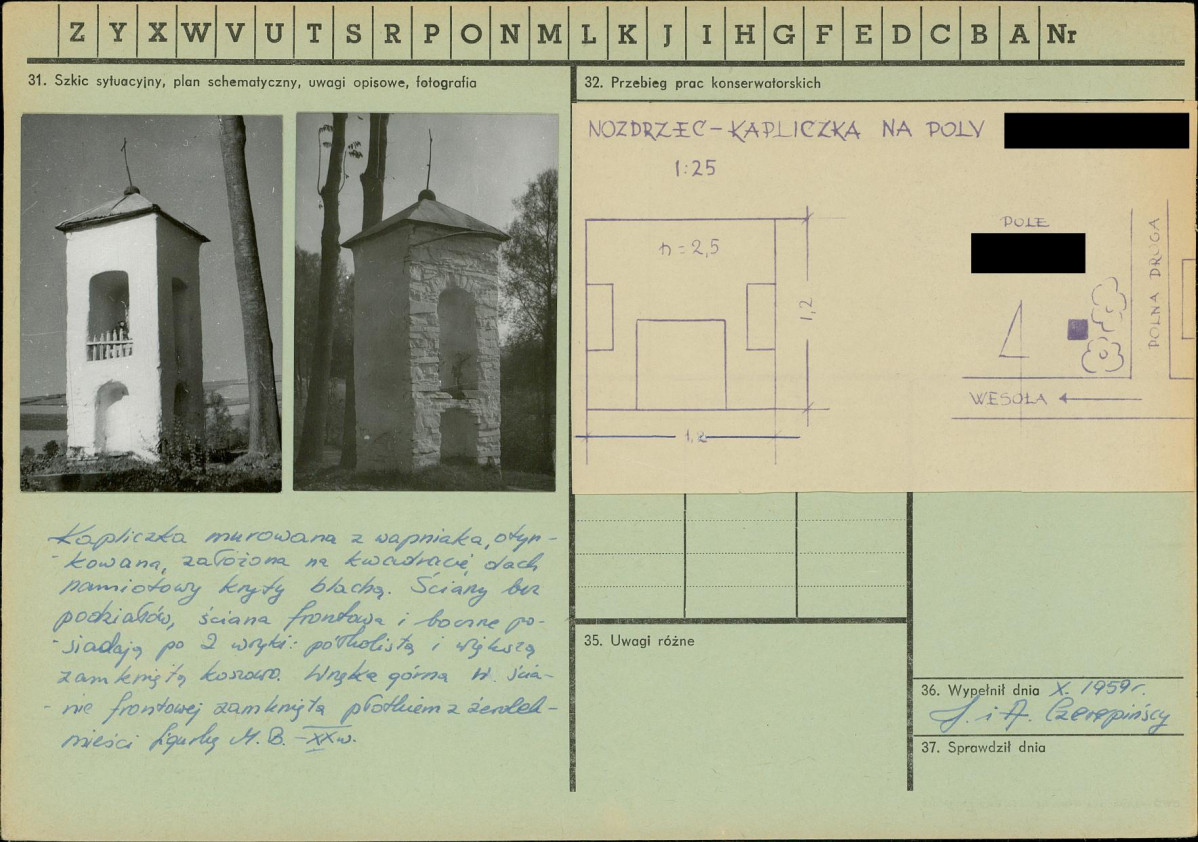 Z Y X W V U T S R P O N M L K J I H G F E D C B A Nr
31. Szkic sytuacyjny, plan schematyczny, uwagi opisowe, fotografia
Kapliczka murowana z wapniaka, otyn-
-kowana, założona na kwadracie, dach
namiotowy kryty blachą. Ściany bez
podziałów, ściana frontowa i boczne po-
-siadają po 2 wnęki: półkolistą i większą
zamkniętą koszowo. Wnęka górna w ścia-
-nie frontowej zamknięta płotkiem z żerdek-
mieści figurkę M. B. - XX w.
32. Przebieg prac konserwatorskich
NOZDRZEC - KAPLICZKA NA POLU
1:25
n = 2,5
1,2
1,2
POLE
POLNA DROGA
WESOŁA
35. Uwagi różne
36. Wypełnił dnia X. 1959 r.
J. i A. Czerepińscy
37. Sprawdził dnia